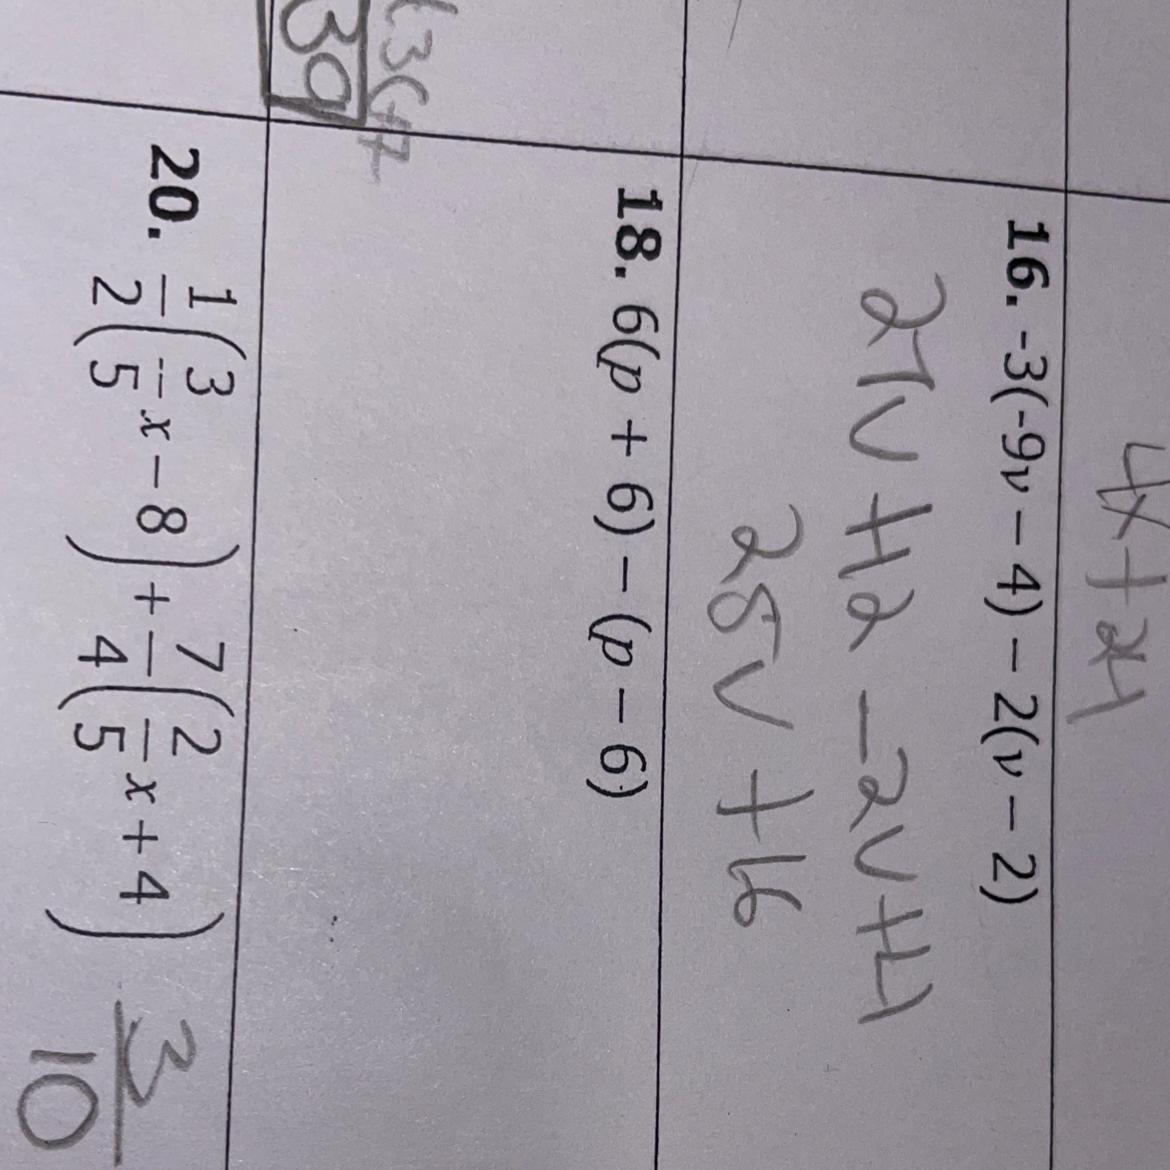 4x + 24
16. -3(-9v – 4) – 2(v – 2)
27v +12 – 2v +4
25v + 16
18. 6(p + 6) – (p – 6)
39
20. 1/2(3/5x – 8) + 7/4(2/5x + 4)
3/10